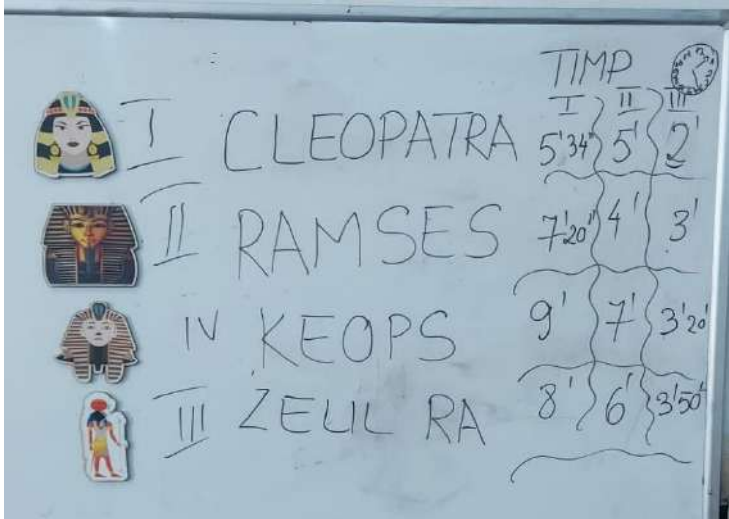 TIMP
I II III
I CLEOPATRA 5'34" 5' 2'
II RAMSES 7'20" 4' 3'
IV KEOPS 9' 7' 3'20'
III ZEUL RA 8' 6' 3'50'